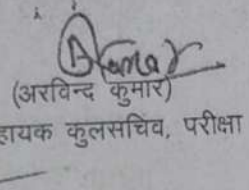 (अरविन्द कुमार)
हायक कुलसचिव, परीक्षा